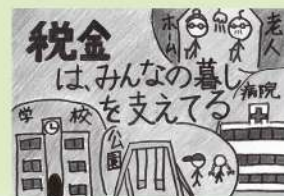 税金
は、みんなの暮し
を支えてる
老人
ホーム
病院
学校
公園